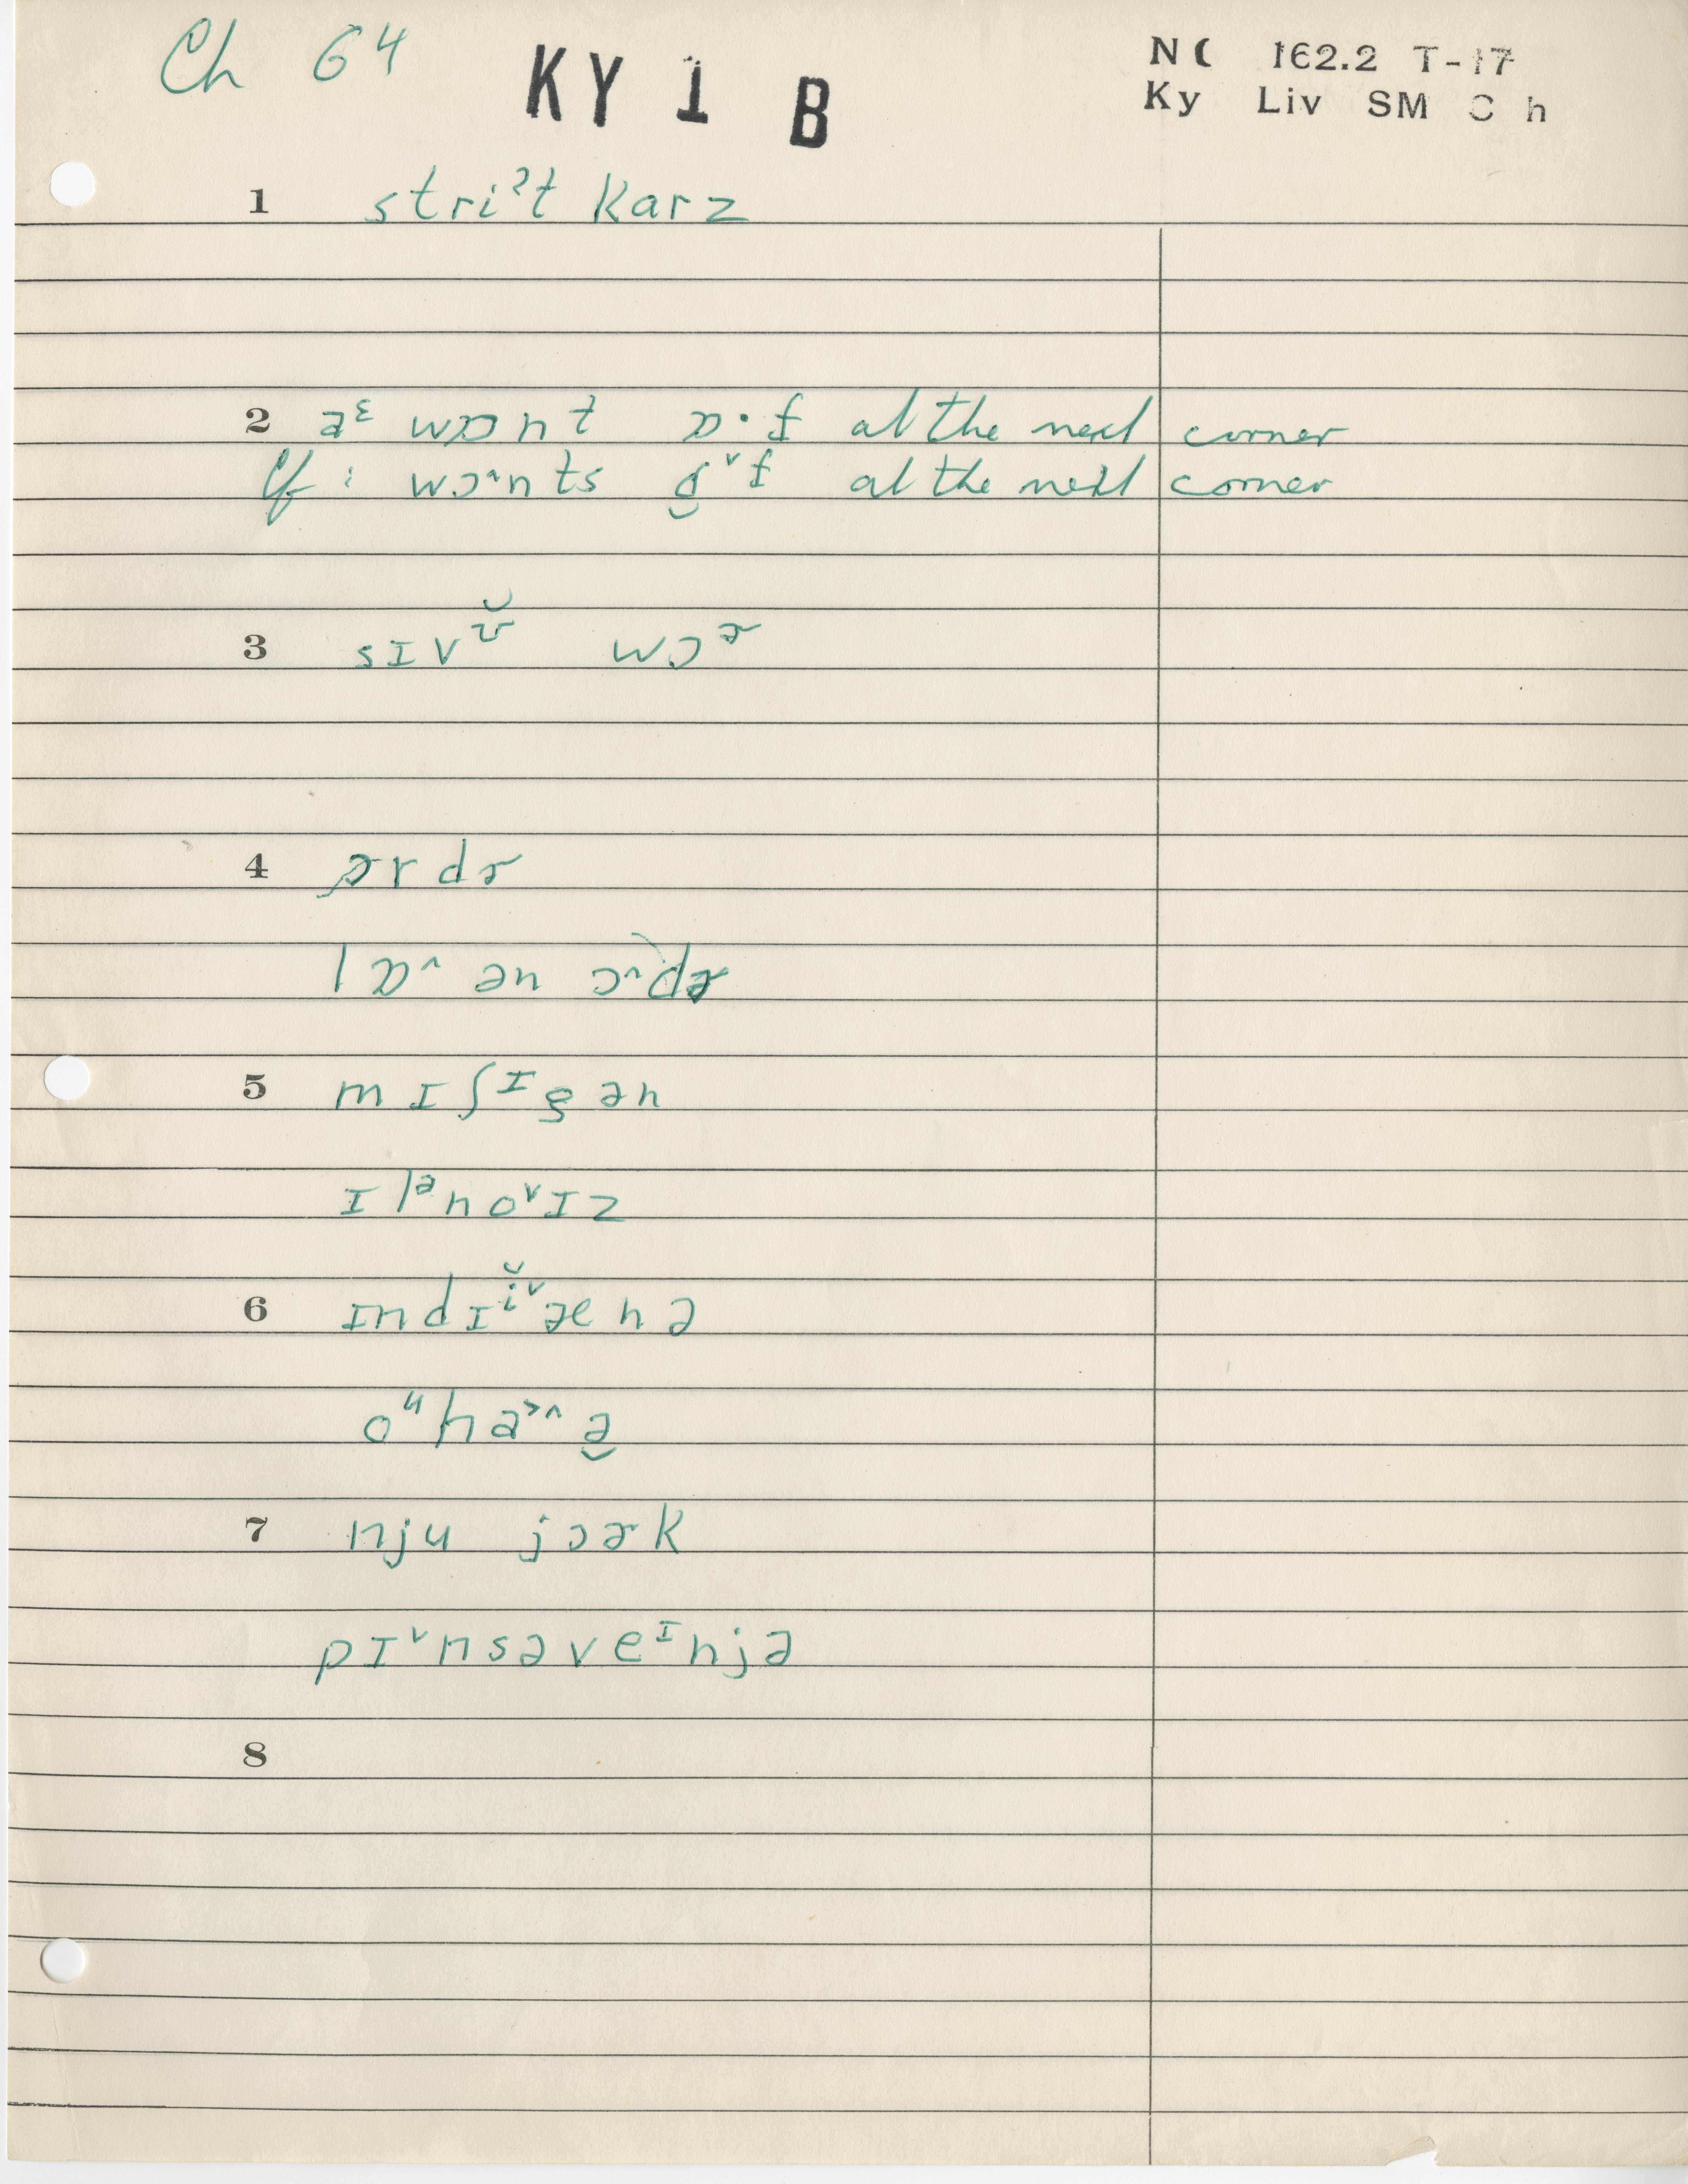 Ch 64 KY 1 B
N C 162.2 T-17
Ky Liv SM C h
1 striˀt karz
2 aᵋ wɒnt ɒ·f at the next corner
If i wɔ˄nts ɒ̯˅f at the next corner
3 sɪvɚ̆ wɔɚ
4 ɔrdɚ
lɒ˄ ən ɔ˄dɚ
5 mɪʃɪgən
ɪlᵊno˅ɪz
6 ɪndɪĭ˅ænə
oᵘha˃˄ə̯
7 nju jɔɚk
pɪ˅nsəveᶦnjə
8